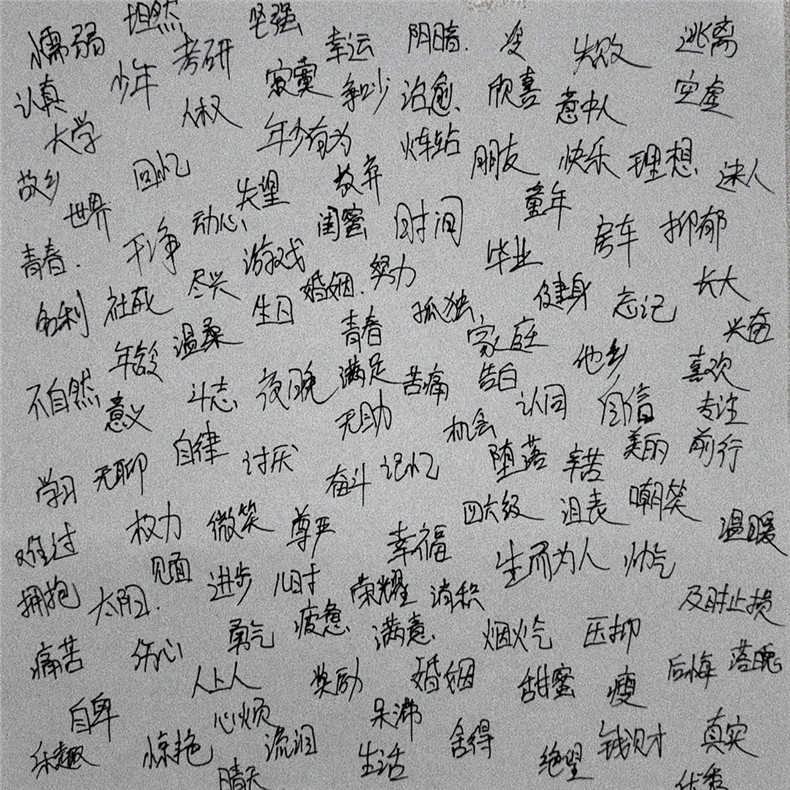 懦弱 坦然 坚强 幸运 阴暗 没 失败 逃离
认真 少年 考研 寂寞 争吵 治愈 欣喜 意中人 空虚
大学 人权 年少有为 火车站 朋友 快乐 理想 迷人
故乡 回忆 失望 放弃 童年
世界 动心 闺蜜 时间 毕业 房车 抑郁
青春 干净 游戏 婚姻 努力 长大
名利 社死 尽兴 生日 孤独 健身 忘记
年龄 温柔 青春 家庭 他乡 兴奋
不自然 意义 斗志 夜晚 满足 苦痛 告白 认同 自信 喜欢 专注
无助 机会 美丽 前行
学习 无聊 自律 讨厌 奋斗 记忆 堕落 辛苦
难过 权力 微笑 尊严 幸福 四六级 沮丧 嘲笑 温暖
拥抱 太阳 见面 进步 儿时 荣耀 消积 生而为人 帅气 及时止损
痛苦 伤心 勇气 疲惫 满意 烟火气 压抑
人上人 奖励 婚姻 甜蜜 瘦 后悔 落魄
自卑 心烦 呆滞
乐趣 惊艳 流泪 生活 舍得 绝望 钱财 真实
晴天 优秀